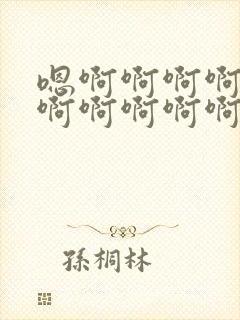 嗯啊啊啊啊
啊啊啊啊啊
孫桐林